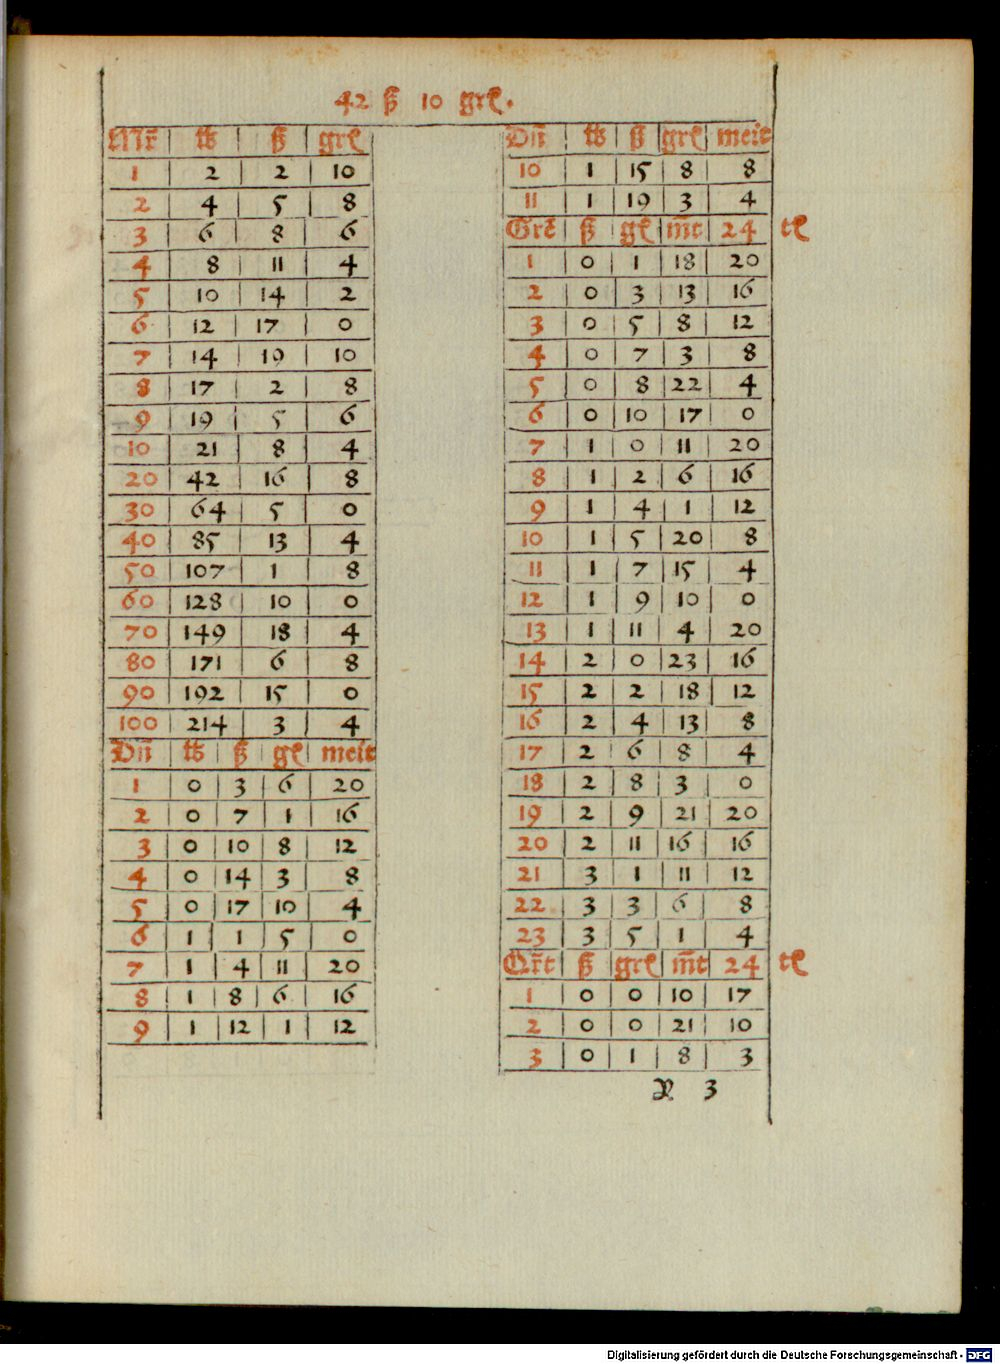 42 ß 10 grꝭ.
Mr̄ | ℔ | ß | grꝭ
1 | 2 | 2 | 10
2 | 4 | 5 | 8
3 | 6 | 8 | 6
4 | 8 | 11 | 4
5 | 10 | 14 | 2
6 | 12 | 17 | 0
7 | 14 | 19 | 10
8 | 17 | 2 | 8
9 | 19 | 5 | 6
10 | 21 | 8 | 4
20 | 42 | 16 | 8
30 | 64 | 5 | 0
40 | 85 | 13 | 4
50 | 107 | 1 | 8
60 | 128 | 10 | 0
70 | 149 | 18 | 4
80 | 171 | 6 | 8
90 | 192 | 15 | 0
100 | 214 | 3 | 4
Dn̄ | ℔ | ß | gꝭ | meit
1 | 0 | 3 | 6 | 20
2 | 0 | 7 | 1 | 16
3 | 0 | 10 | 8 | 12
4 | 0 | 14 | 3 | 8
5 | 0 | 17 | 10 | 4
6 | 1 | 1 | 5 | 0
7 | 1 | 4 | 11 | 20
8 | 1 | 8 | 6 | 16
9 | 1 | 12 | 1 | 12
Dn̄ | ℔ | ß | grꝭ | meit
10 | 1 | 15 | 8 | 8
11 | 1 | 19 | 3 | 4
Grẽ | ß | gꝭ | m̄t | 24 tꝭ
1 | 0 | 1 | 18 | 20
2 | 0 | 3 | 13 | 16
3 | 0 | 5 | 8 | 12
4 | 0 | 7 | 3 | 8
5 | 0 | 8 | 22 | 4
6 | 0 | 10 | 17 | 0
7 | 1 | 0 | 11 | 20
8 | 1 | 2 | 6 | 16
9 | 1 | 4 | 1 | 12
10 | 1 | 5 | 20 | 8
11 | 1 | 7 | 15 | 4
12 | 1 | 9 | 10 | 0
13 | 1 | 11 | 4 | 20
14 | 2 | 0 | 23 | 16
15 | 2 | 2 | 18 | 12
16 | 2 | 4 | 13 | 8
17 | 2 | 6 | 8 | 4
18 | 2 | 8 | 3 | 0
19 | 2 | 9 | 21 | 20
20 | 2 | 11 | 16 | 16
21 | 3 | 1 | 11 | 12
22 | 3 | 3 | 6 | 8
23 | 3 | 5 | 1 | 4
Qr̄t | ß | grꝭ | m̄t | 24 tꝭ
1 | 0 | 0 | 10 | 17
2 | 0 | 0 | 21 | 10
3 | 0 | 1 | 8 | 3
3
Digitalisierung gefördert durch die Deutsche Forschungsgemeinschaft - DFG